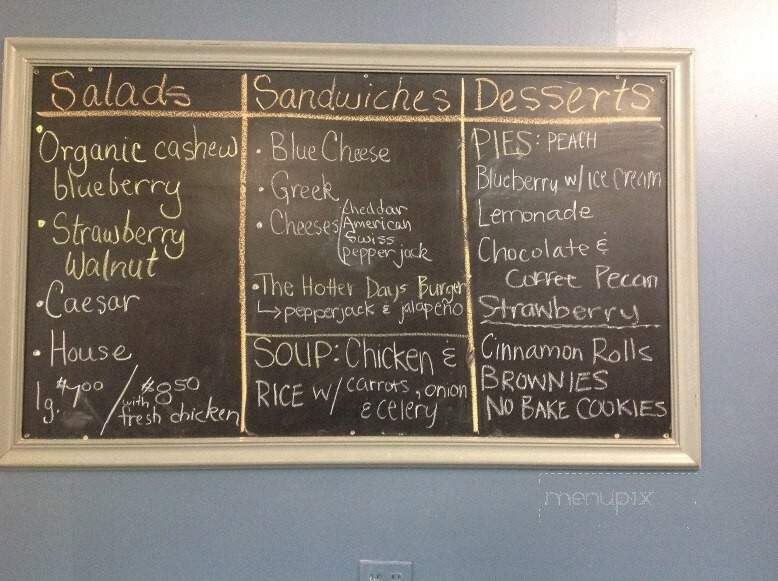 Salads
• Organic cashew
blueberry
• Strawberry
Walnut
• Caesar
• House
lg. $7.00 / $8.50
with
fresh chicken
Sandwiches
• Blue Cheese
• Greek
• Cheeses
Cheddar
American
Swiss
pepper jack
• The Hotter Days Burger
↳ pepperjack & jalapeño
SOUP: Chicken &
RICE W/ carrots, onion
& celery
Desserts
PIES: PEACH
Blueberry w/ Ice Cream
Lemonade
Chocolate &
Coffee Pecan
Strawberry
Cinnamon Rolls
BROWNIES
NO BAKE COOKIES
menupix